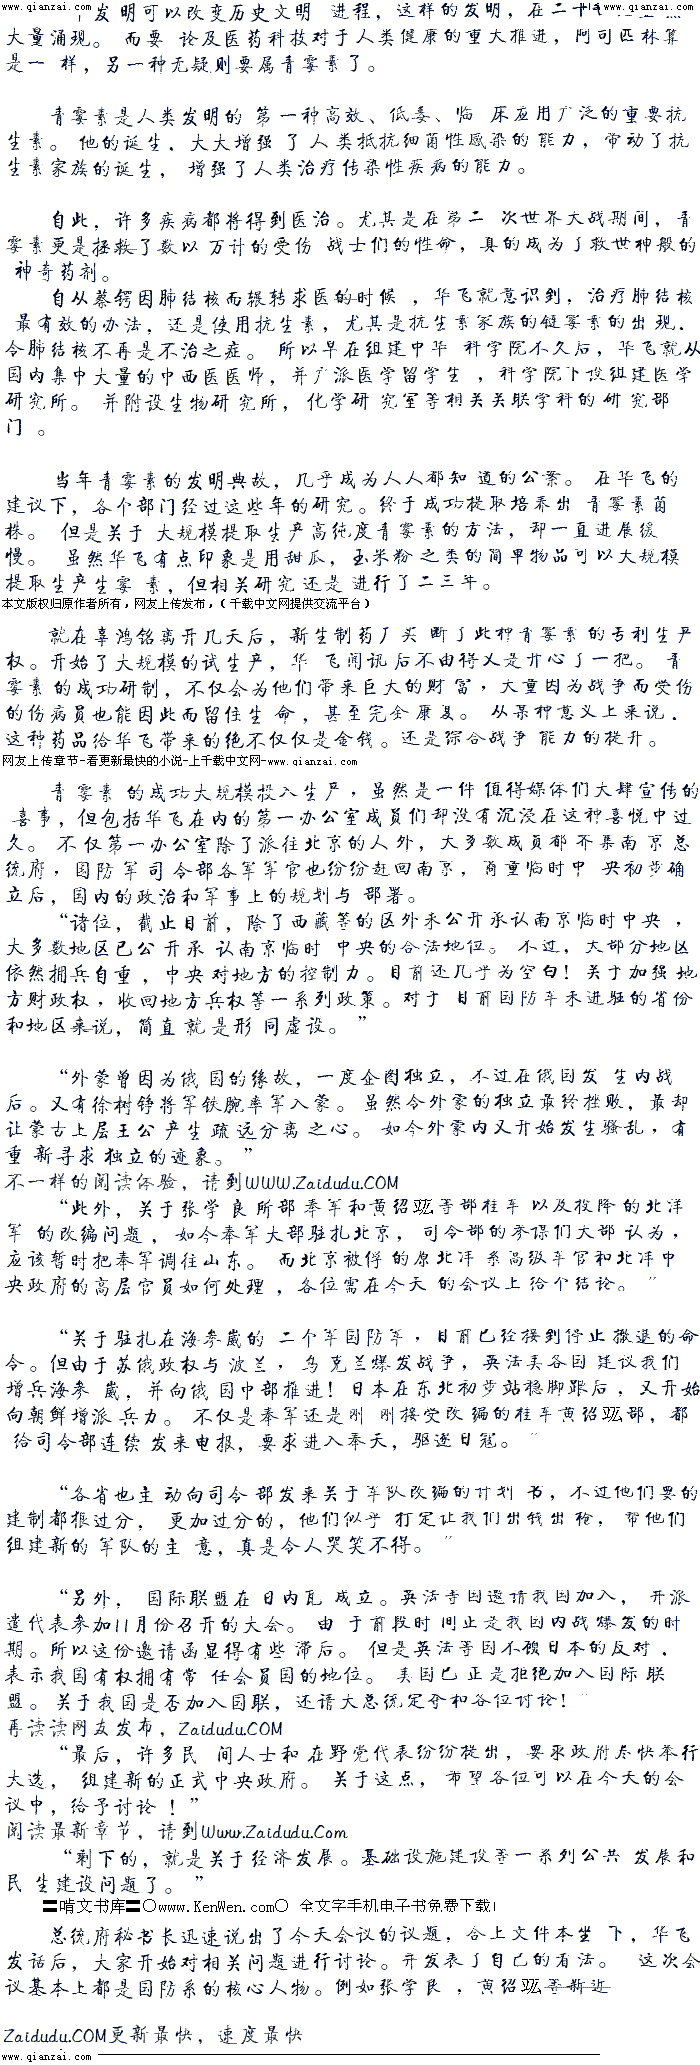 www.qianzai.com www.qianzai.com
发明可以改变历史文明 进程，这样的发明，在二十
大量涌现。 而要 论及医药科技对于人类健康的重大推进，阿司匹林算
是一 样，另一种无疑则要属青霉素了。
青霉素是人类发明的 第一种高效、低毒、临 床应用广泛的重要抗
生素。 他的诞生．大大增强 了 人 类抵抗细菌性感染的 能力，带动了抗
生素家族的诞生， 增强了人类治疗传染性疾病的能力。
自此，许多疾病都将得到医治。尤其是在第二 次世界大战期间，青
霉素更是拯救了数以 万计的受伤 战士们的性命，真的成为了救世神般的
神奇药剂。
自从蔡锷因肺结核而辗转求医的时候 ，华飞就意识到，治疗肺结核
最有效的办法，还是使用抗生素，尤其是抗生素家族的链霉素的出 现．
令肺结核不再是不治之症。 所以早在组建中华 科学院不久后，华飞就从
国内集中大量的中西医医师，并广派医学留学生 ，科学院下设组建医学
研究所。 并附设生物研 究所，化学研 究室等相关关联学科的 研 究部
门 。
当年青霉素的发明典故，几乎成为人人都知 道的公案。 在华飞的
建议下，各个部门经过这些年的研究。终于成功提取培养出 青霉素菌
株。 但是关于 大规模提取生产高纯度青霉素的方法，却一直进展缓
慢。 虽然华飞有点印象是用甜瓜，玉米粉 之类的简单物品可以大规模
提取生产生霉 素，但相关研究 还是 进行了二三年。
本文版权归原作者所有，网友上传发布，（ 千载中文网提供交流平台 ）
就在辜鸿铭离开几天后，新生制药厂买 断了此种青霉素 的专利生产
权。开始了大规模的试生产，华 飞闻讯后不由得又是开心了一把。 青
霉素 的成功研制，不仅会为他们带来巨大的财 富，大量因为战争而受伤
的伤病员也能因此而留住生 命，甚至完全 康复。 从某种意义上来说．
这种药品给华飞带来的绝不仅仅是金钱。还是综合战争 能力的提升。
网友上传章节-看更新最快的小说-上千载中文网-www.qianzai.com
青 霉素 的成功大规模投入生产，虽然是一件 值得媒体们大肆宣传的
喜事，但包括华飞在内的第一办公室成员们却没有沉浸在这种喜悦中过
久。 不 仅第一办公室除了派往北京的人外，大多数成员都齐集南 京总
统府，国防 军 司 令部各军军官也纷纷赶回南京，商量临时中 央初步确
立后，国内的政治和军事上的规划与 部署。
“诸位，截止目前，除了西藏等的区外未公开承认南京临时中央 ，
大多数地区已公 开承 认南京临时 中央的合法地位。 不过，大部分地区
依然拥兵自重 ，中央 对地方的控制力。目前还几乎为空白！关于加强 地
方财政权，收回地方兵权等一系列政策。对于 目前国防军未进驻的省份
和地区来说，简直 就 是形 同虚设。 ”
“外蒙曾因为俄 国的缘故，一度企图独立，不过在俄国发 生内战
后。又有徐树铮将军铁腕率军入蒙。 虽然令外蒙的独立最终挫败，最却
让蒙古上层王公 产生 疏 远分离 之心。 如今外蒙内又开始发生骚乱，有
重 新寻求 独立的迹象。 ”
不一样的阅读体验，请到WWW.Zaidudu.COM
“此外，关于张学 良 所部 奉军和黄绍竑等部桂军 以及投降 的北洋
军 的改编问题 ，如今奉军大部驻扎北京， 司令部的参谋们大部 认为，
应该暂时把奉军调往山东。 而北京被俘 的原北洋 系高级军官和北洋中
央政府的高层官员如何处理 ，各位需在今天 的会议上 给个结论。 ”
“关于驻扎在海参崴的 二个军国防军，目前已经接到停止 撤退的命
令。但由于苏俄政权与 波兰，乌克兰爆发战争，英法美各国 建议我们
增兵海参 崴，并向俄 国中部推进！日本在东北初步站稳脚跟后，又开始
向朝鲜增派 兵力。 不仅是奉军还是刚 刚接受改 编的桂军黄绍竑部，都
给司令部连续 发来电报，要求进入奉天，驱逐日寇。 ”
“各省也主 动向司令 部发来关于军队改编的计划 书，不过他们要的
建制都很过分， 更加过分的，他们似乎 打定让我们出钱出枪， 帮他们
组建新的 军队的主 意，真是令人哭笑不得。 ”
“另外， 国际联盟在 日内瓦 成立。英法等国邀请我国加入， 并派
遣代表参加11月份召开的大会。 由 于前段时 间正是我国内战 爆发的时
期。所以这份邀请函显得有些 滞后。 但是英法等国不顾日本的反对．
表示我国有权拥有常 任会员国的地位。 美国已 正是拒绝加入国际 联
盟。 关于我国是否加入国联，还请大总统定夺和各位讨论！”
再读读网友发布，Zaidudu.COM
“最后，许多民 间人士和 在野党代表纷纷提出，要求政府尽快举行
大选， 组建新的正式中央政府。 关于这点，希望各位可以在今天的会
议中，给予讨论 ！”
阅读最新章节，请到Www.Zaidudu.Com
“剩下的，就是关于经济发展。基础设施建设等一系列公共 发展和
民 生建设问题了。 ”
〓啃文书库〓○www.KenWen.com○ 全文字手机电子书免费下载!
总统府秘书长迅速说出了今天会议的议题，合上文件本坐 下，华飞
发话后，大家开始对相关问题进行讨论。并发表了自己的看法。 这次会
议基本上都是国防系的核心人物。例如张学良 ，黄绍竑等新近
Zaidudu.COM更新最快，速度最快
www.qianzai.com